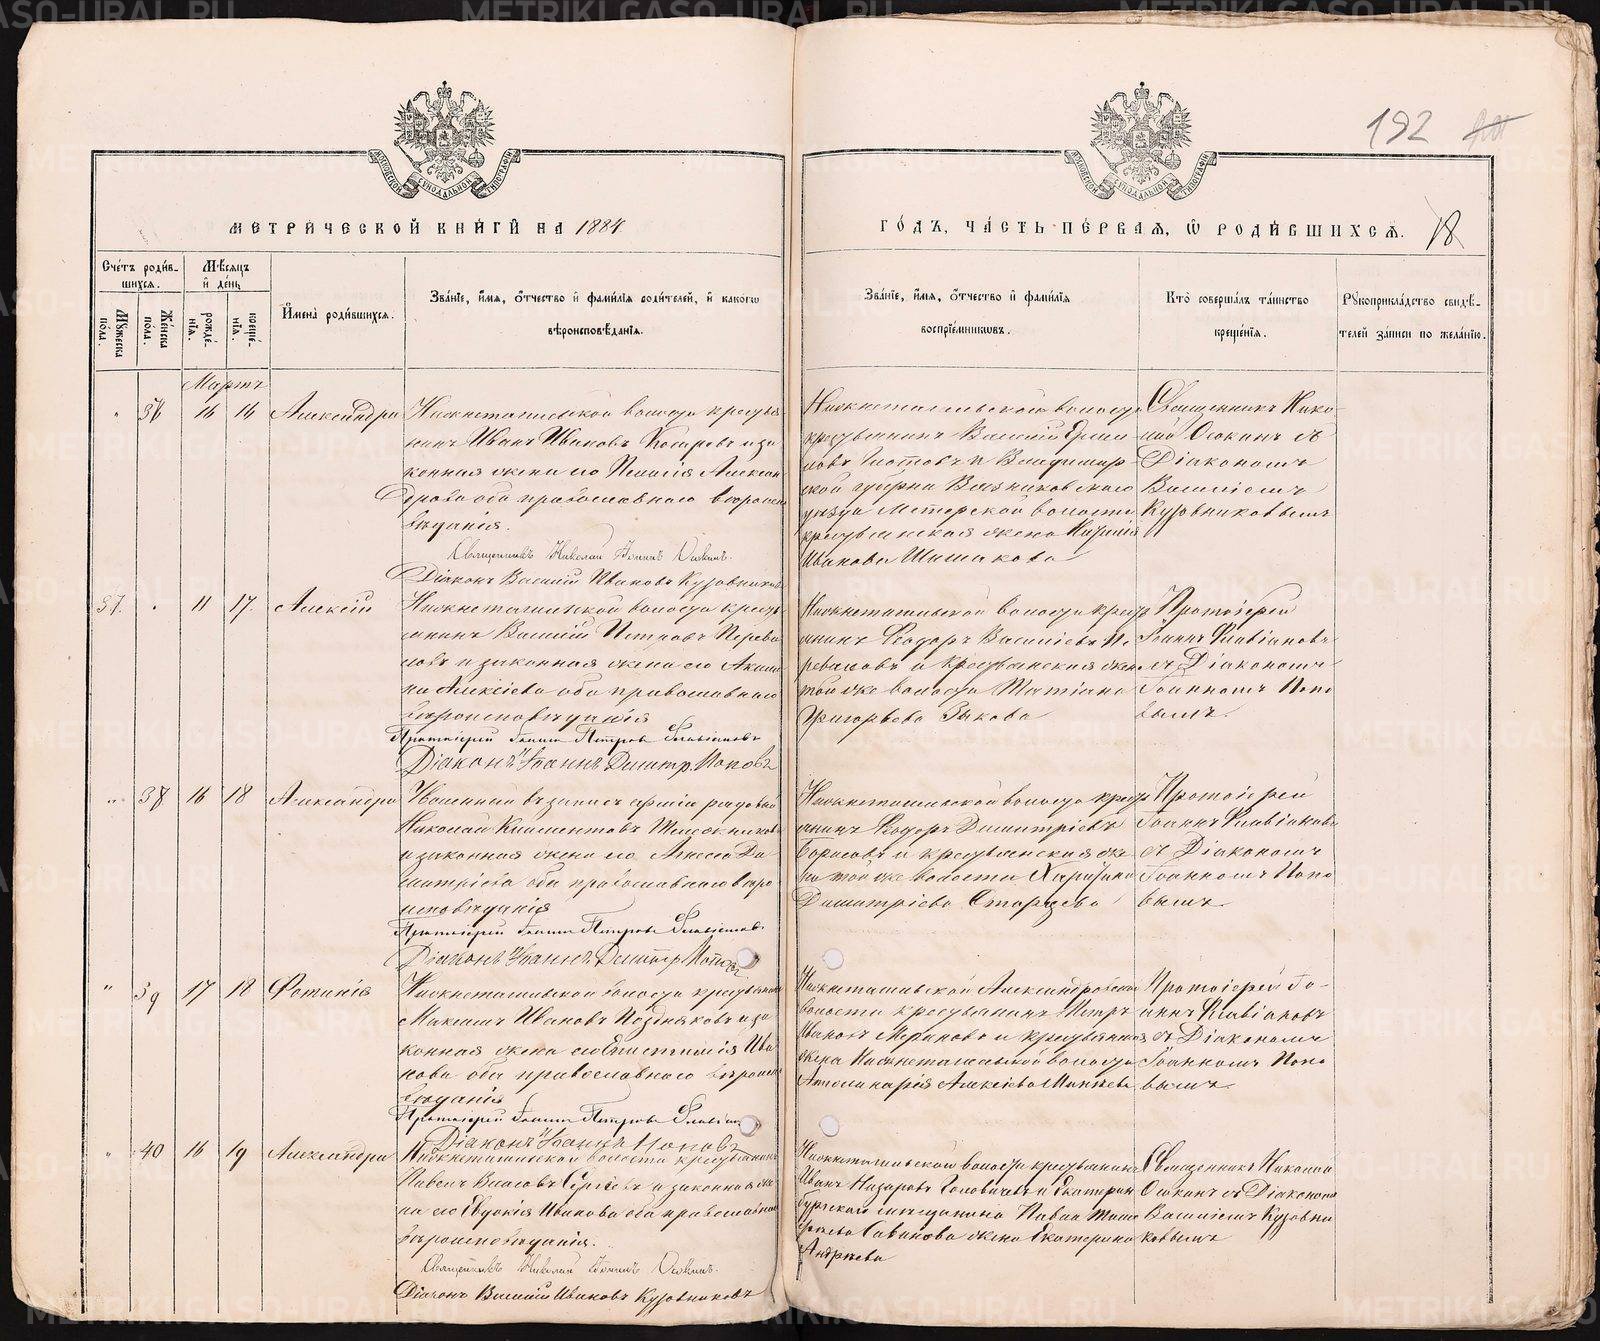 192
МЕТРИЧЕСКОЙ КНИГИ НА 1884
ГОДЪ, ЧАСТЬ ПЕРВАЯ, Ѡ РОДИВШИХСЯ.
18
МОСКОВСКОЙ СУНОДАЛЬНОЙ ТИПОГРАФІИ
МОСКОВСКОЙ СУНОДАЛЬНОЙ ТИПОГРАФІИ
Счетъ родив-
шихся.
Мужеска пола.
Женска пола.
Мѣсяцъ
и день
рожде-
нїѧ.
креще-
нїѧ.
Имена родившихся.
Званїе, имя, ѻтчество и фамилїя родителей, и какогѡ
вѣроисповѣданїя.
Званїе, имя, ѻтчество и фамилїя
воспрїемниковъ.
Кто совершалъ таинство
крещенїя.
Рꙋкоприкладство свидѣ-
телей записи по желанїю.
Мартъ
" 36 16 16 Александра
Нижнетагильской волости крестья
нинъ Иванъ Ивановъ Косаревъ и за
конная жена его Пелагія Алексан
дрова оба православнаго вѣроиспо
вѣданія.
Священникъ Николай Іоаннъ Осокинъ.
Діаконъ Василій Ивановъ Кузовниковъ
Нижнетагильской волости
крестьянинъ Василій
и Владимир
ской губерніи Вязниковскаго
уѣзда Мстерской волости
крестьянская жена
Иванова Шишакова
Священникъ Нико
лай Осокинъ съ
Діакономъ
Василіемъ
Кузовниковымъ
37. " 11 17. Алексій
Нижнетагильской волости кресть
янинъ Василій Петровъ Перева
ловъ и законная жена его Акили
на Алексіева оба православнаго
вѣроисповѣданія
Протоіерей Іоаннъ Петровъ Флавіановъ
Діаконъ Іоаннъ Димитр. Поповъ
Нижнетагильской волости кресть
янинъ Ѳеодоръ Василіевъ Пе
реваловъ и крестьянская жена
той же волости Татіана
Григорьева Зыкова
Протоіерей
Іоаннъ Флавіановъ
съ Діакономъ
Іоанномъ Попо
вымъ.
" 38 16 18 Александра
Уволенный въ запасъ арміи рядовой
Николай Климентовъ
и законная жена его Ди
митріева оба православнаго вѣро
исповѣданія
Протоіерей Іоаннъ Петровъ Флавіановъ
Діаконъ Іоаннъ Димитр Поповъ
Нижнетагильской волости кресть
янинъ Ѳеодоръ Димитріевъ
Борисовъ и крестьянская же
на той же волости Харитина
Димитріева Старцева
Протоіерей
Іоаннъ Флавіановъ
съ Діакономъ
Іоанномъ Попо
вымъ.
" 39 17 18 Фотинія
Нижнетагильской волости крестьянинъ
Максимъ Ивановъ Поздняковъ и за
конная жена его Епистимія Ива
нова оба православнаго вѣроиспо
вѣданія
Протоіерей Іоаннъ Петровъ Флавіан
Діаконъ Іоаннъ Поповъ
Нижнетагильской Александровской
волости крестьянинъ Петръ
Ивановъ и крестьянская
жена Нижнетагильской волости
Аполинарія Алексіева
Протоіерей Іо-
аннъ Флавіановъ
съ Діакономъ
Іоанномъ Попо
вымъ.
" 40 16 19 Александра
Нижнетагильской волости крестьянинъ
Павелъ Власовъ Сергѣевъ и законная же
на его Евдокія Иванова оба православнаго
вѣроисповѣданія.
Священникъ Николай Іоаннъ Осокинъ.
Діаконъ Василій Ивановъ Кузовниковъ
Нижнетагильской волости крестьянинъ
Иванъ Назаровъ и Екатерин
бургскаго мещанина Павла
Савинова жена Екатерина
Андреева
Священникъ Николай
Осокинъ съ Діакономъ
Василіемъ Кузовни
ковымъ
METRIKI.GASO-URAL.RU